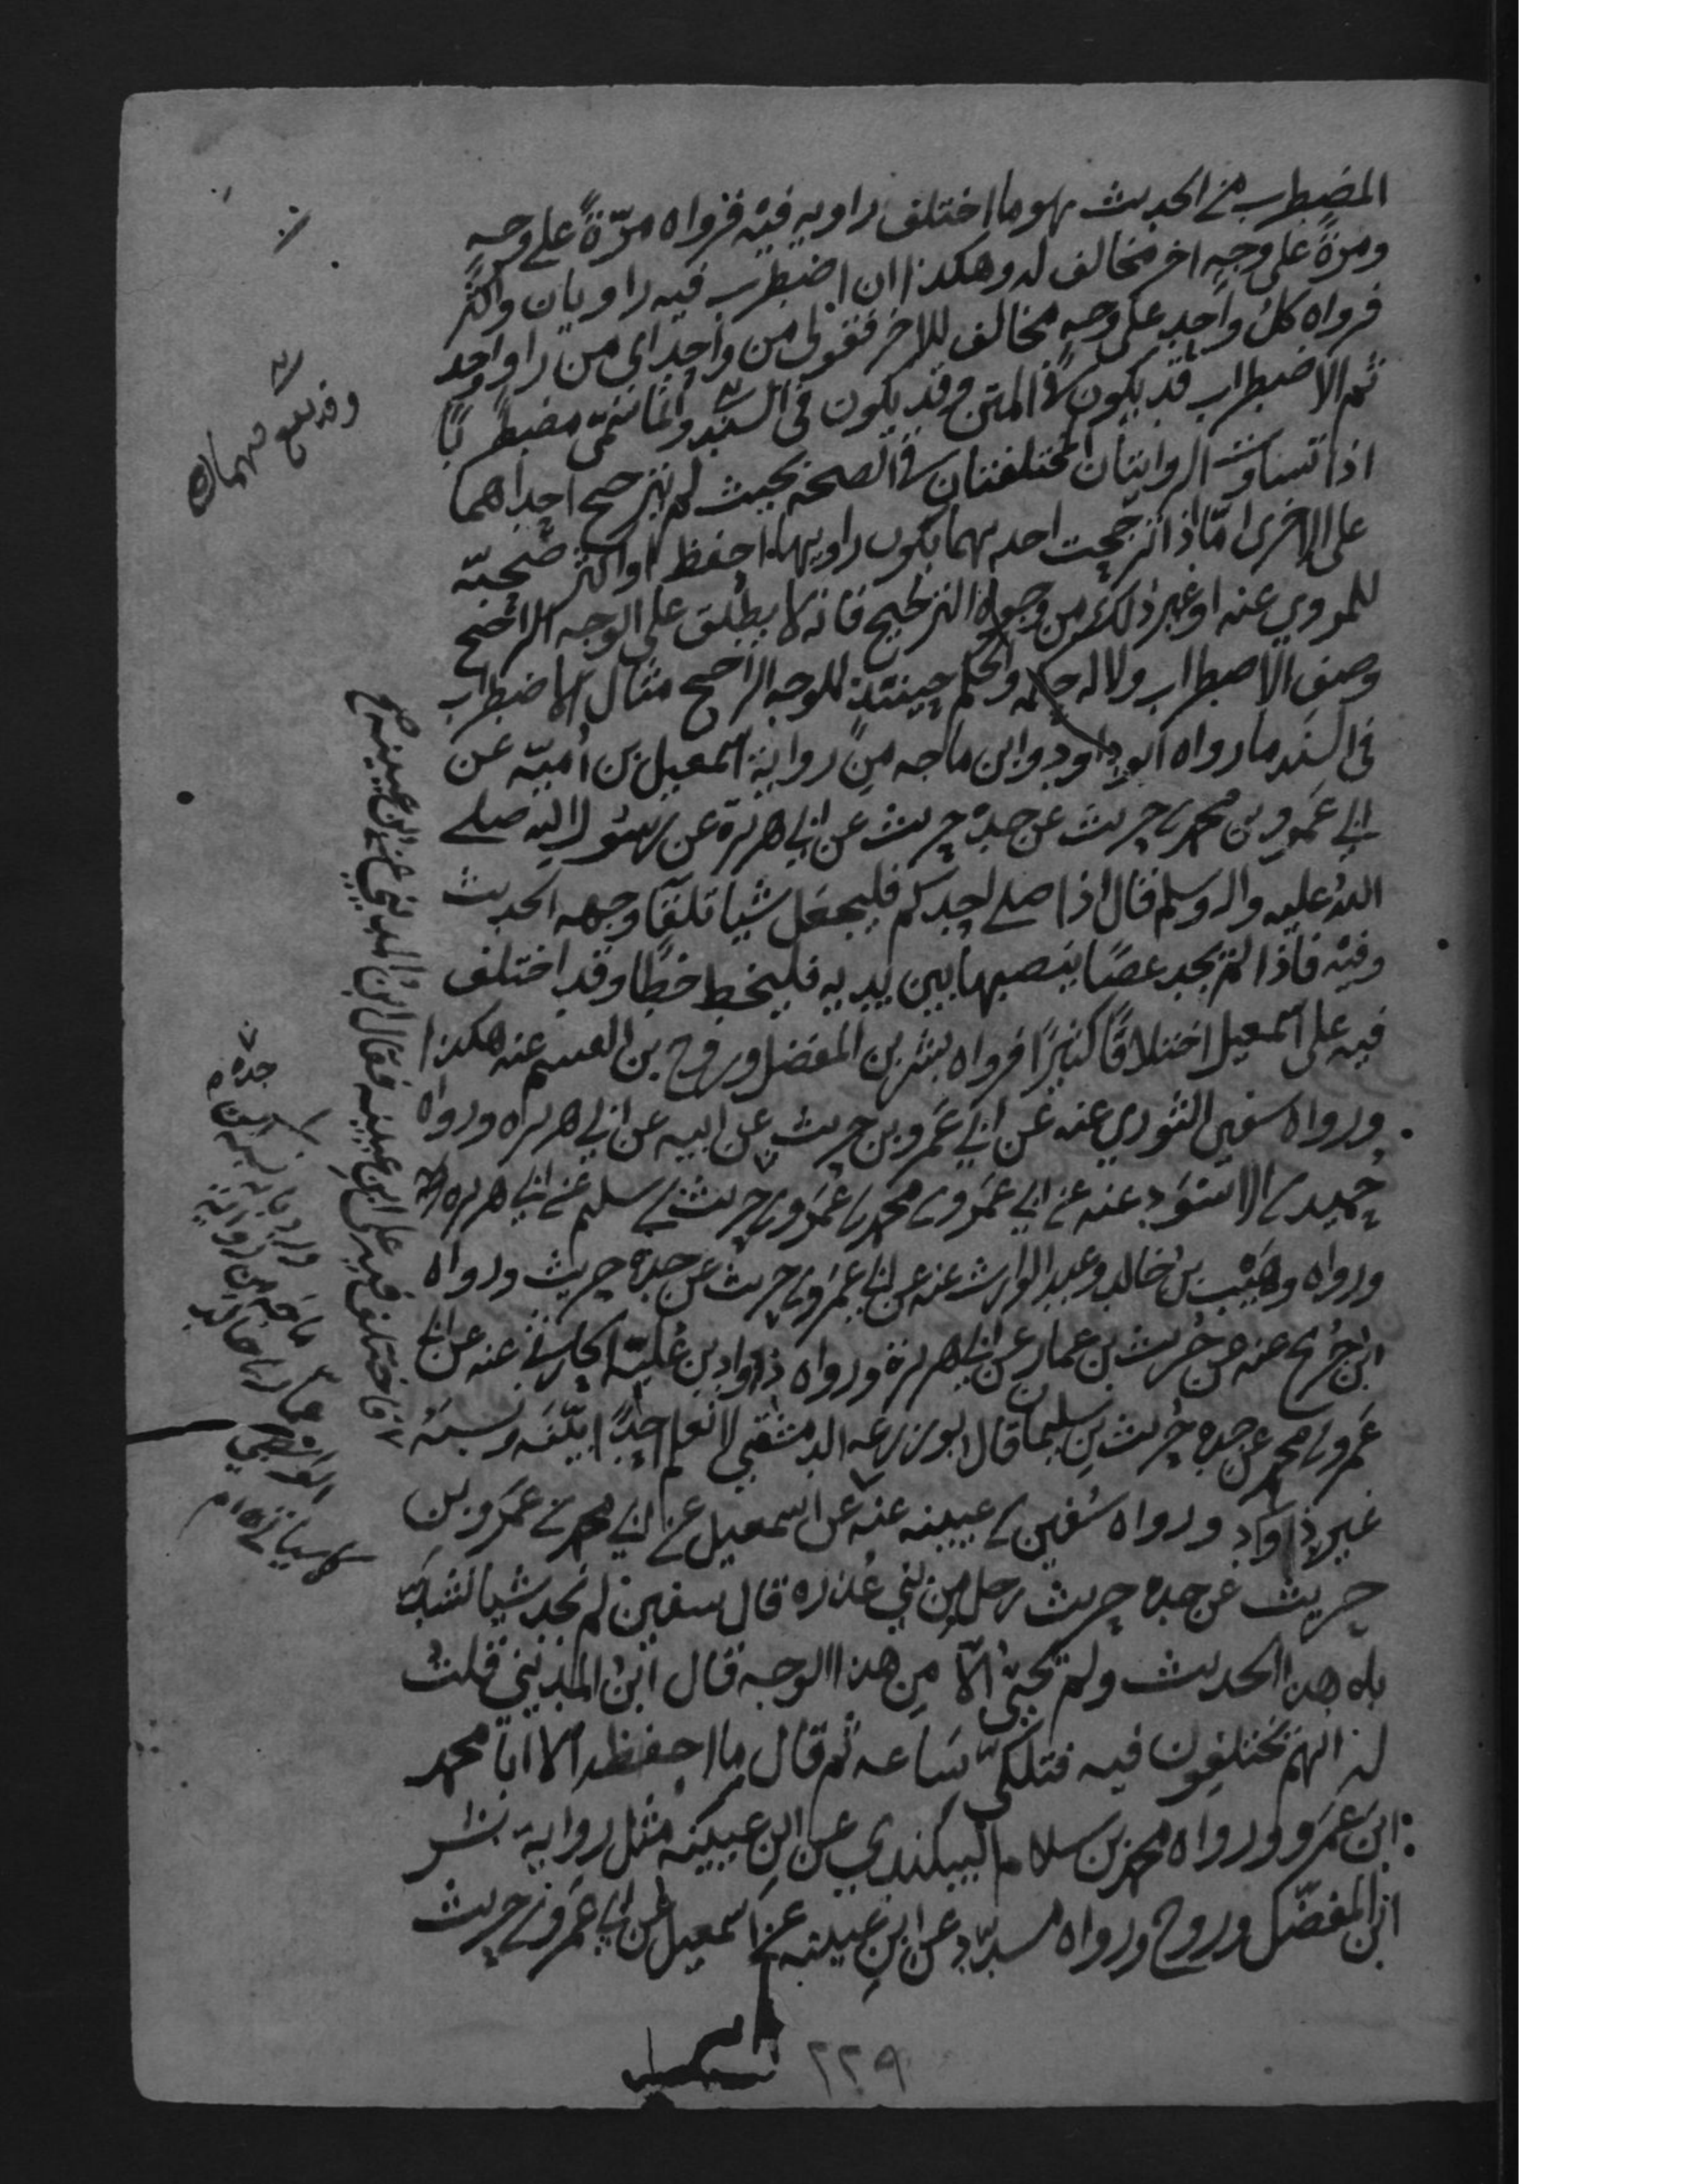 المضطرب من الحديث هو ما اختلف راويه فيه فرواه مرّةً على وجهٍ
ومرّةً على وجهٍ اخر مخالف له وهكذا ان اضطرب فيه راويان واكثر
فرواه كلُ واحدٍ على وجهٍ مخالف للاخر فقولى من واحد اى من راو واحد
ثم الاضطراب قد يكون فى المتن وقد يكون فى السند وانما يسمّى مضطربًا
اذا تساوت الروايتان المختلفتان فى الصحة بحيث لم تترجح احداهما
على الاخرى امّا اذا ترجحت احديهما بكون راويها احفظ او اكثر صحبة
للمروي عنه او غير ذلك من وجوه الترجيح فانه لا يطلق على الوجه الراجح
وصف الاضطراب ولا له حكمه والحكم حينئذٍ للوجه الراجح مثال الاضطراب
فى السند ما رواه ابوداود وابن ماجه من رواية اسمعيل بن اُميّة عن
ابي عَمرو بن محمد بن حريث عن جده حريث عن ابي هريرة عن رسول الله صلى
اللهُ عليه واله وسلم قال اذا صلى احدكم فليجعل شيا تلقآ وجهه الحديث
وفيه فاذا لم يجد عصًا ينصبها بين يديه فليخط خطًا وقد اختلف
فيه على اسمعيل اختلافًا كثيرًا فرواه بشر بن المفضل وروح بن القسم عنه هكذا
ورواه سفين الثوري عنه عن ابي عَمرو بن حريث عن ابيه عن ابي هريره ورواه
حُميد بن الاسود عنه عن ابي عَمرو بن محمد بن عَمرو بن حريث بن سليم عن ابي هريره
ورواه وهَيْب بن خالد وعبد الوارث عنه عن ابي عَمرو بن حريث عن جده حريث ورواه
ابن جُريج عنه عن حُريث بن عمار عن ابي هريرة ورواه ذواد بن عُلبة الحارثي عنه عن ابي
عَمرو بن محمد عن جده حُريث بن سليمان قال ابو زرعه الدمشقي لا نعلم احدًا ابيّنه ونسبَهُ
غير ذواد ورواه سُفين بن عيينه عنه عن اسمعيل عن ابي محمد بن عَمرو بن
حريث عن جده حريث رجل من بني عُذره قال سفين لم نجد شيا نشدّ
به هذا الحديث ولم يجئ الّا من هذا الوجه قال ابنُ المديني قلتُ
له انهم يختلفون فيه فتفكّر ساعه ثم قال ما احفظه الا ابا محمد
ابن عَمرو ورواه محمد بن سلام البيكندي عن ابن عيينه مثل رواية بشر
ابن المفضّل وروح ورواه مسدّد عن ابن عيينه عن اسمعيل عن ابي عَمرو بن حريث
وقد يقع فيهما
فاختلف فيه على ابن عيينه فقال ابن المديني عن ابن عيينه
جده
ماجه من رواية
عمار بن خالد
الواسطي
٢٢٩